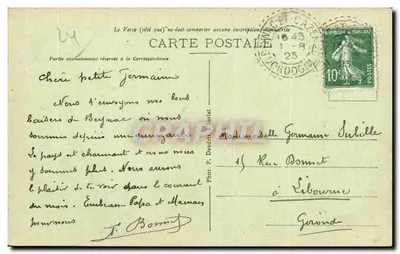 Le Verso (côté vue) ne doit comporter aucune inscription manuscrite
CARTE POSTALE
Partie exclusivement réservée à la Correspondance
Chère petite Germaine
Nous t'envoyons nos bons
baisers de Beynac où nous
sommes depuis
Le pays est charmant et nous nous
y sommes plus. Nous aurons
le plaisir de te voir dans le courant
du mois. Embrasse Papa et Maman
pour nous
Bonnet
Mademoiselle Germaine
15 Rue Bonnet
à Libourne
Gironde
Phot. P.
16 45
1 - 8
23
DORDOGNE
10c
POSTES
CARPHILA